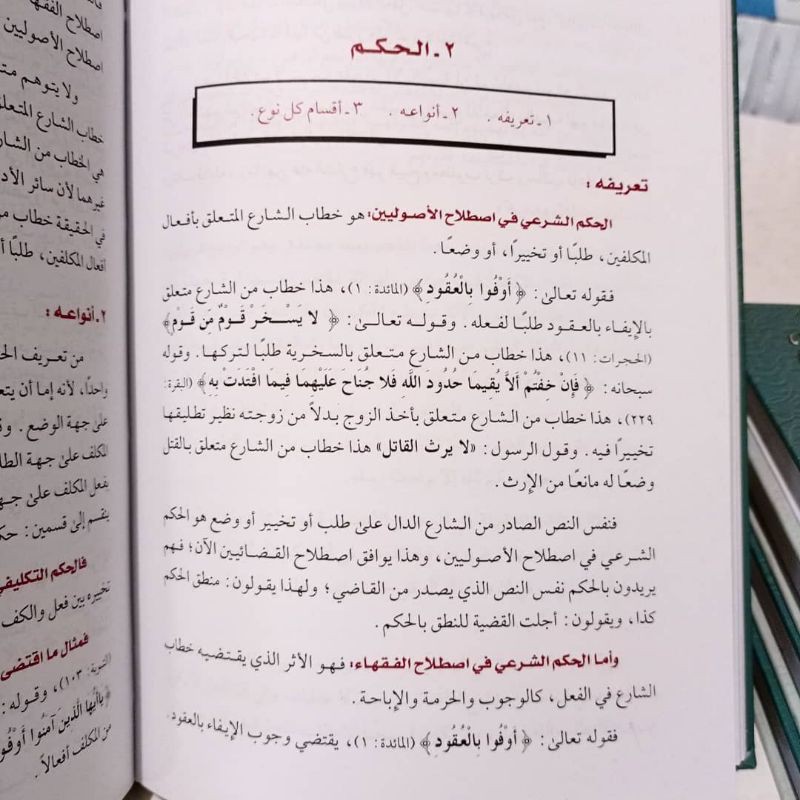 ٢ - الحكم
١ - تعريفه . ٢ - أنواعه . ٣ - أقسام كل نوع .
تعريفه :
الحكم الشرعي في اصطلاح الأصوليين: هو خطاب الشارع المتعلق بأفعال
المكلفين، طلبًا أو تخييرًا، أو وضعًا .
فقوله تعالىٰ : ﴿ أَوْفُوا بِالْعُقُودِ ﴾ (المائدة : ١)، هذا خطاب من الشارع متعلق
بالإيفاء بالعقود طلبًا لفعله . وقوله تعالىٰ : ﴿ لا يَسْخَرْ قَوْمٌ مِّن قَوْمٍ ﴾
(الحجرات : ١١)، هذا خطاب من الشارع متعلق بالسخرية طلبًا لتركها . وقوله
سبحانه : ﴿ فَإِنْ خِفْتُمْ أَلاَّ يُقِيمَا حُدُودَ اللَّهِ فَلا جُنَاحَ عَلَيْهِمَا فِيمَا افْتَدَتْ بِهِ ﴾ (البقرة :
٢٢٩)، هذا خطاب من الشارع متعلق بأخذ الزوج بدلاً من زوجته نظير تطليقها
تخييرًا فيه . وقول الرسول : «لا يرث القاتل» هذا خطاب من الشارع متعلق بالقتل
وضعًا له مانعًا من الإرث .
فنفس النص الصادر من الشارع الدال علىٰ طلب أو تخيير أو وضع هو الحكم
الشرعي في اصطلاح الأصوليين، وهذا يوافق اصطلاح القضائيين الآن؛ فهم
يريدون بالحكم نفس النص الذي يصدر من القاضي ؛ ولهذا يقولون : منطق الحكم
كذا، ويقولون : أجلت القضية للنطق بالحكم .
وأما الحكم الشرعي في اصطلاح الفقهاء: فهو الأثر الذي يقتضيه خطاب
الشارع في الفعل، كالوجوب والحرمة والإباحة .
فقوله تعالىٰ : ﴿ أَوْفُوا بِالْعُقُودِ ﴾ (المائدة : ١)، يقتضي وجوب الإيفاء بالعقود.
اصطلاح الفقها
اصطلاح الأصوليين
ولا يتوهم
خطاب الشارع المتعلق
هي الخطاب من الشار
غيرهما لأن سائر الأد
في الحقيقة خطاب من
أفعال المكلفين، طلبًا أ
٢ - أنواعه :
من تعريف الح
واحدًا، لأنه إما أن يتع
علىٰ جهة الوضع .
المكلف علىٰ جهة الط
بفعل المكلف علىٰ جـ
ينقسم إلىٰ قسمين : حك
فالحكم التكليفي
تخييره بين فعل والكف
فمثال ما اقتضى
١٠٣)، وقوله :
يَا أَيُّهَا الَّذِينَ آمَنُوا أَوْفُو
من المكلف أفعالاً .